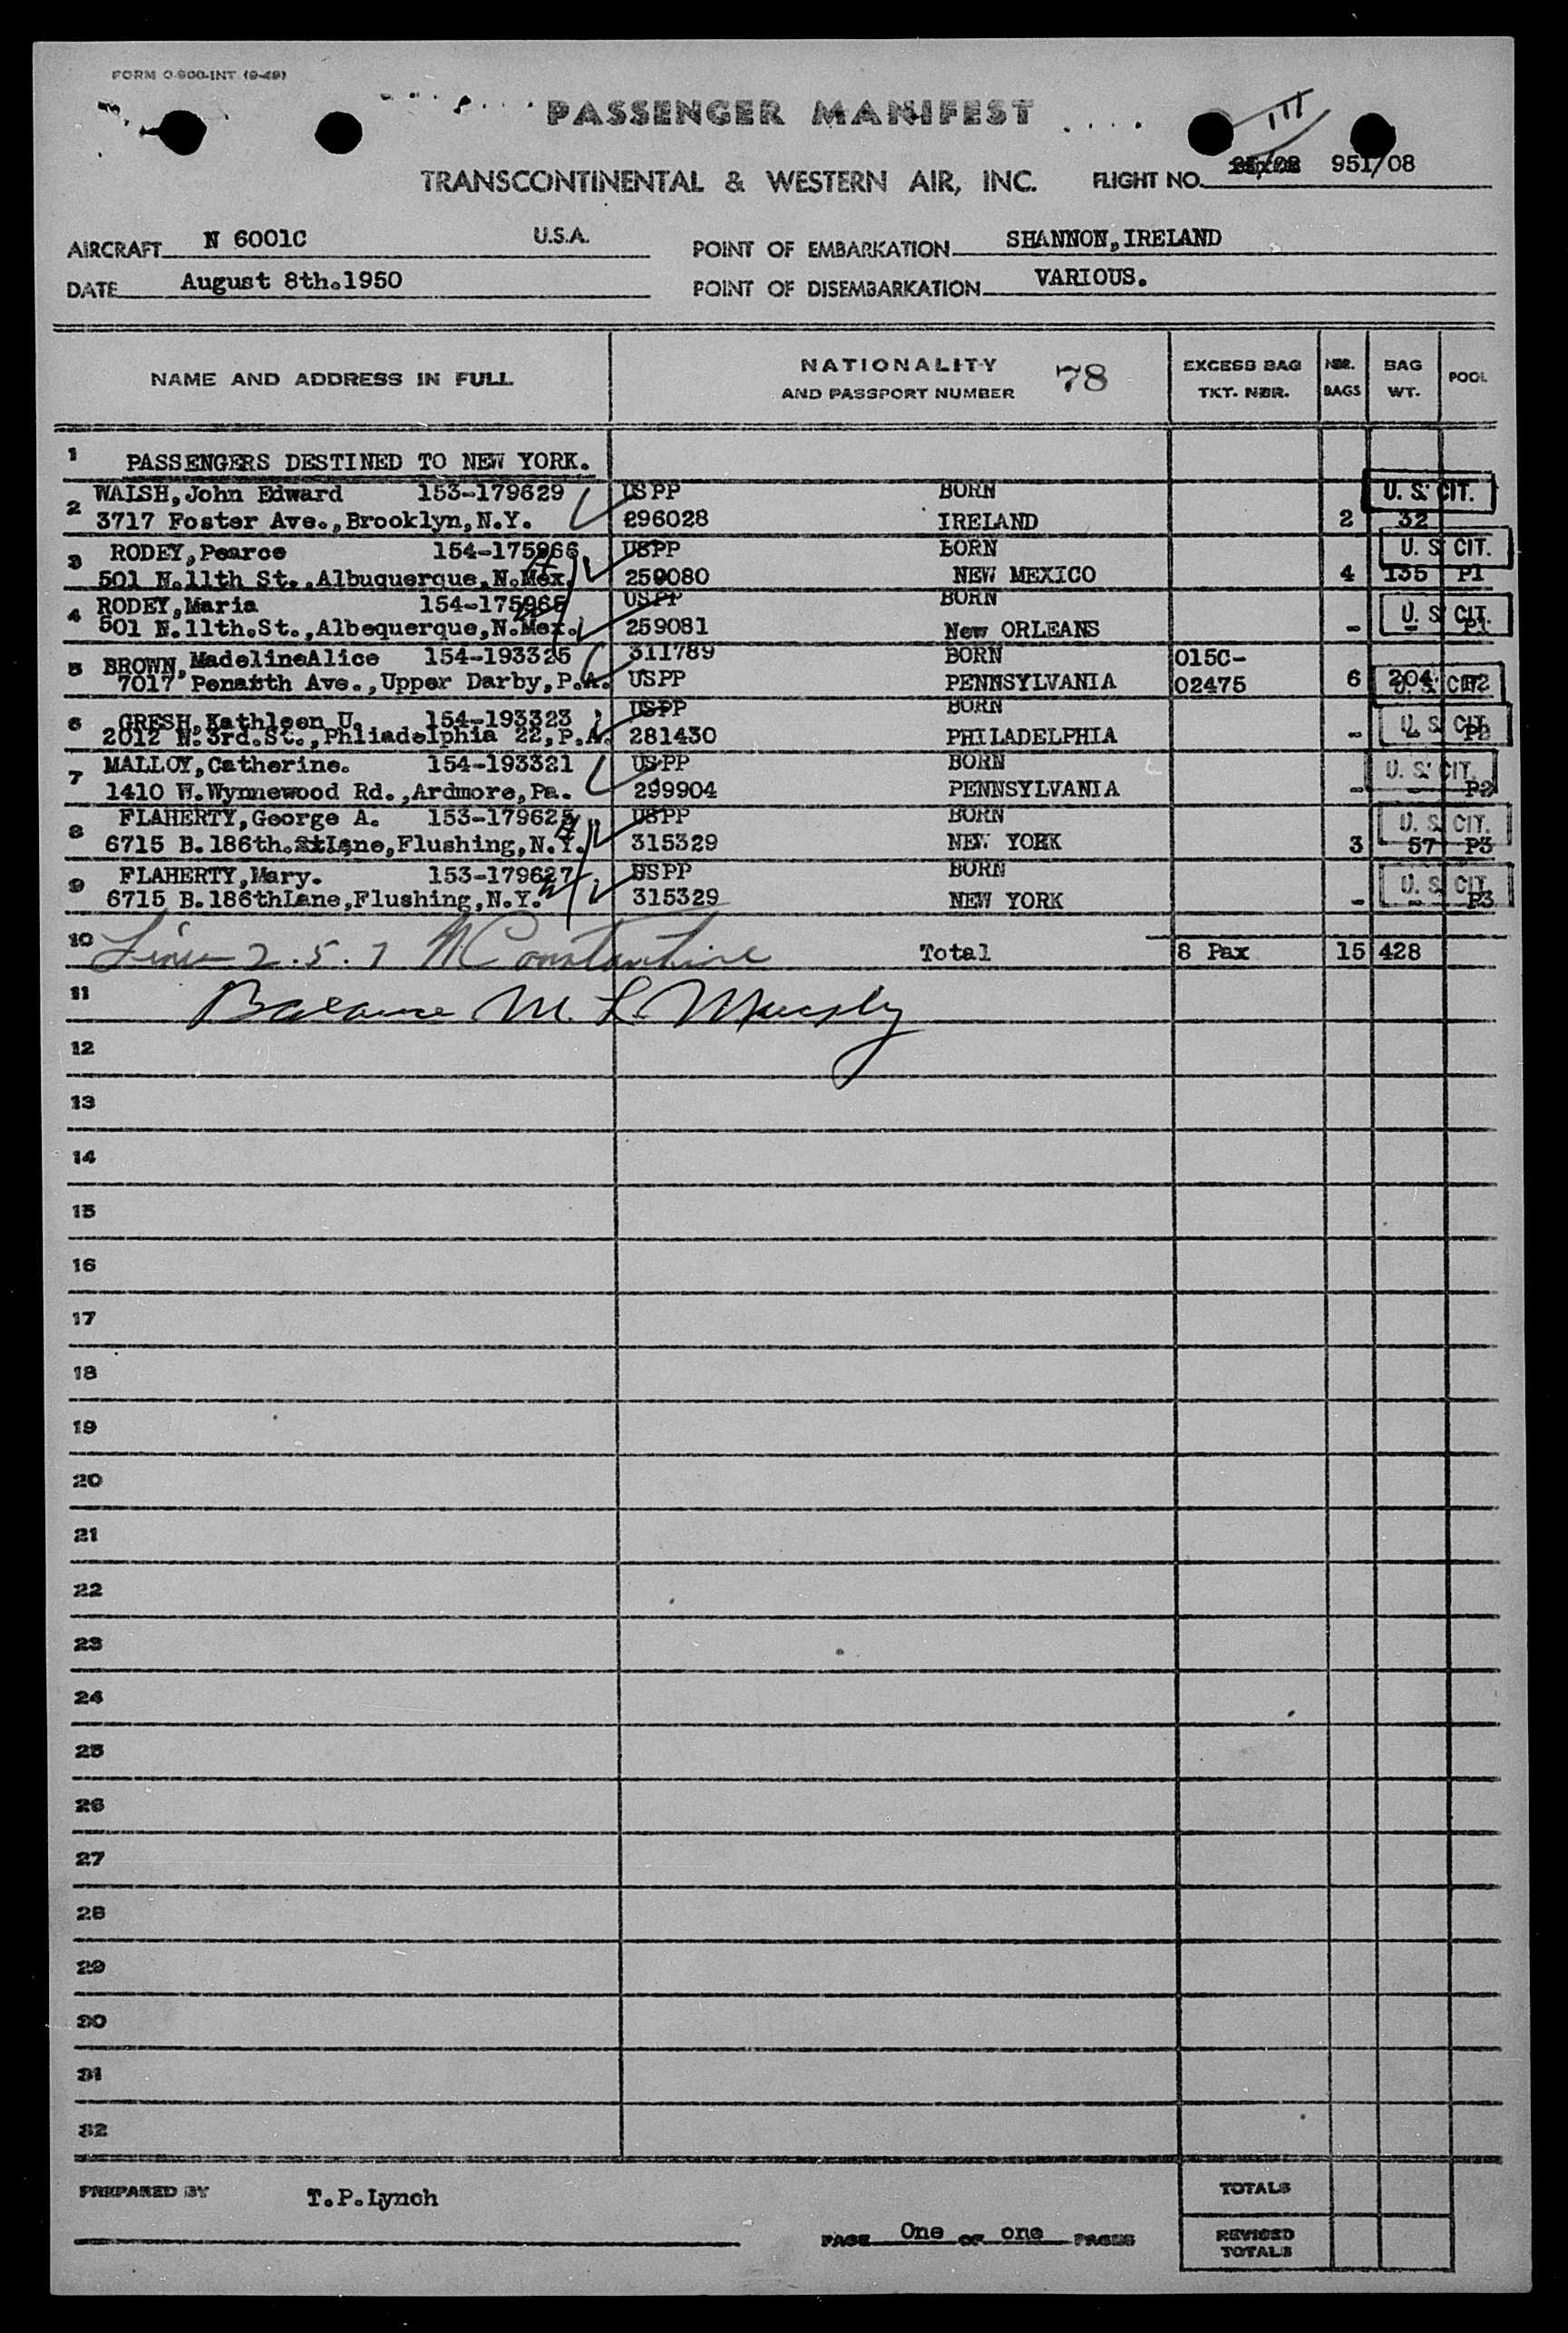 FORM O-900-INT (9-49)
PASSENGER MANIFEST
111
TRANSCONTINENTAL & WESTERN AIR, INC. FLIGHT NO. 951/08
AIRCRAFT N 6001C U.S.A. POINT OF EMBARKATION SHANNON, IRELAND
DATE August 8th.1950 POINT OF DISEMBARKATION VARIOUS.
NAME AND ADDRESS IN FULL NATIONALITY AND PASSPORT NUMBER 78 EXCESS BAG TKT. NBR. NBR. BAGS BAG WT. POOL
1 PASSENGERS DESTINED TO NEW YORK.
2 WALSH, John Edward 153-179629 US PP BORN U. S. CIT.
3717 Foster Ave., Brooklyn, N.Y. 296028 IRELAND 2 32
3 RODEY, Pearce 154-175966 USPP BORN U. S. CIT.
501 N.11th St., Albuquerque, N.Mex. 259080 NEW MEXICO 4 135 P1
4 RODEY, Maria 154-175965 USPP BORN U. S. CIT.
501 N.11th.St., Albequerque, N.Mex. 259081 New ORLEANS - - P1
5 BROWN, MadelineAlice 154-193325 311789 BORN 015C-
7017 Ave., Upper Darby, P.A. USPP PENNSYLVANIA 02475 6 204 P2 U. S. CIT.
6 GRESH, Kathleen U. 154-193323 USPP BORN U. S. CIT.
2012 N.3rd.St., Philadelphia 22, P.A. 281430 PHILADELPHIA - - P2
7 MALLOY, Catherine. 154-193321 USPP BORN U. S. CIT.
1410 W.Wynnewood Rd., Ardmore, Pa. 299904 PENNSYLVANIA - - P2
8 FLAHERTY, George A. 153-179625 USPP BORN U. S. CIT.
6715 B.186th. Lane, Flushing, N.Y. 315329 NEW YORK 3 57 P3
9 FLAHERTY, Mary. 153-179627 USPP BORN U. S. CIT.
6715 B.186thLane, Flushing, N.Y. 315329 NEW YORK - - P3
10 Lines 2.5.7 M Constantine Total 8 Pax 15 428
11 Balance M. L. Murphy
12
13
14
15
16
17
18
19
20
21
22
23
24
25
26
27
28
29
30
31
32
PREPARED BY T.P.Lynch TOTALS
PAGE One OF one PAGES REVISED TOTALS